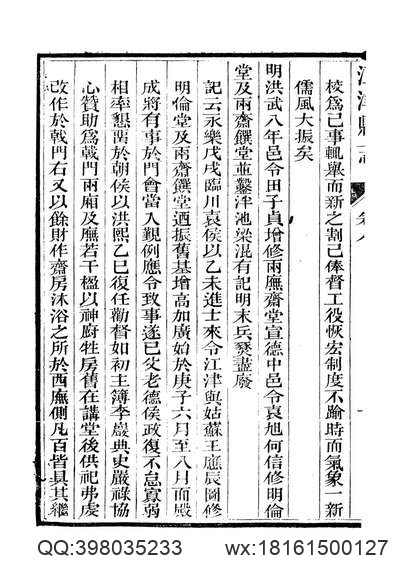 江津縣志 卷八
棱爲己事輒舉而新之割己俸督工役恢宏制度不踰時而氣象一新
儒風大振矣
明洪武八年邑令田子貞增修兩廡齋堂宣德中邑令袁旭何信修明倫
堂及兩齋饌堂並鑿泮池梁混有記明末兵燹盡廢
記云永樂戊戌臨川袁侯以乙未進士來令江津與姑蘇王應辰圖修
明倫堂及兩齋饌堂迺振舊基增高加廣始於庚子六月至八月而殿
成將有事於門會當入覲例應令致事遂已父老德侯政復不忍寡弱
相率懇留於朝侯以洪熙乙巳復任勸督如初主簿李嚴典史嚴祿協
心贊助爲戟門兩廂及廡若干楹以神廚牲房舊在講堂後供祀弗虔
改作於戟門右又以餘財作齋房沐浴之所於西廡側凡百皆具其繼
QQ:398035233 wx:18161500127